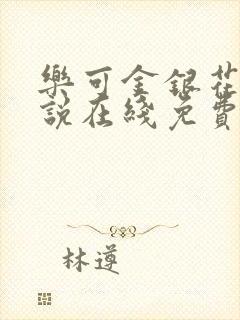 樂可金銀花
說在綫免費
林遵